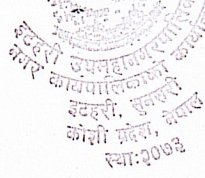 इटहरी उपमहानगरपालिका
नगर कार्यपालिकाको कार्यालय
इटहरी, सुनसरी
कोशी प्रदेश, नेपाल
स्था: २०७३